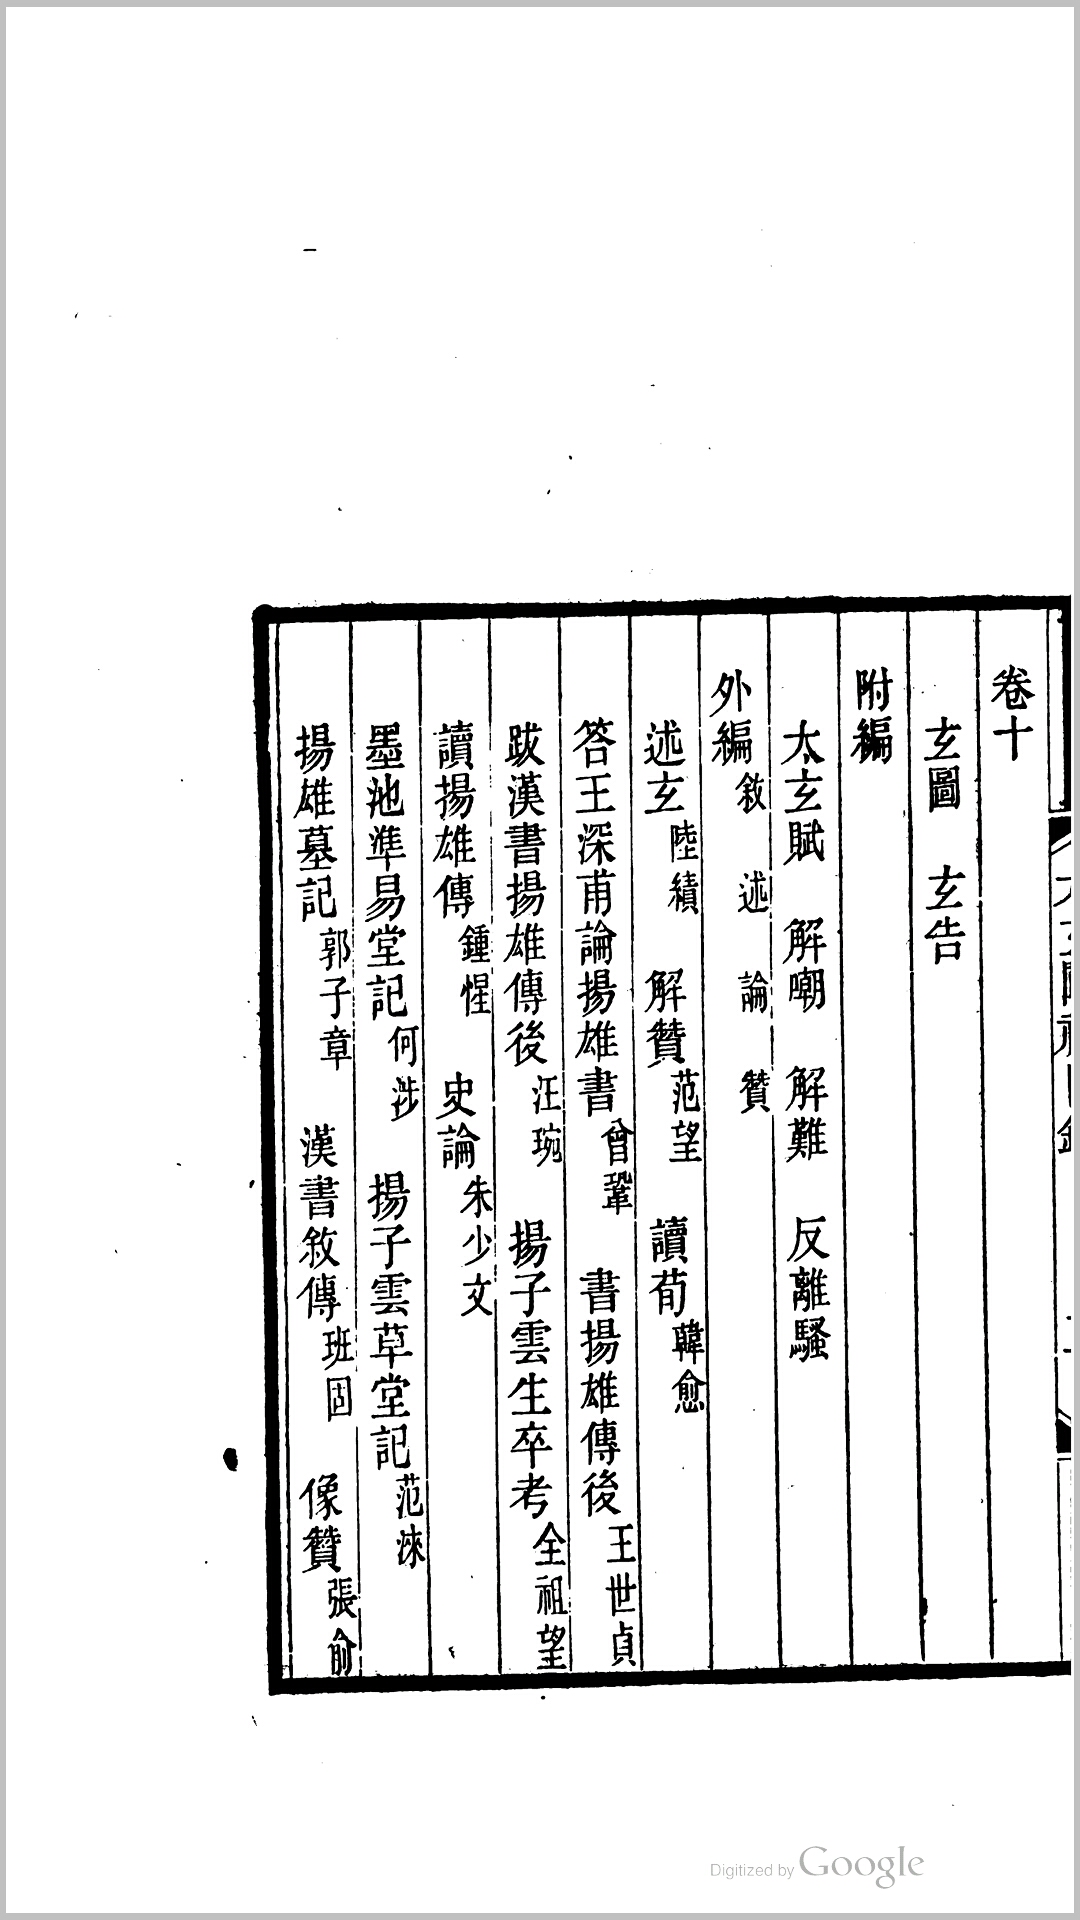 卷十
玄圖　玄告
附編
太玄賦　解嘲　解難　反離騷
外編敘　述　論　贊
述玄陸績　解贊范望　讀荀韓愈
答王深甫論揚雄書曾鞏　書揚雄傳後王世貞
跋漢書揚雄傳後汪琬　揚子雲生卒考全祖望
讀揚雄傳鍾惺　史論朱少文
墨池準易堂記何涉　揚子雲草堂記范淶
揚雄墓記郭子章　漢書敘傳班固　像贊張俞
Digitized by Google